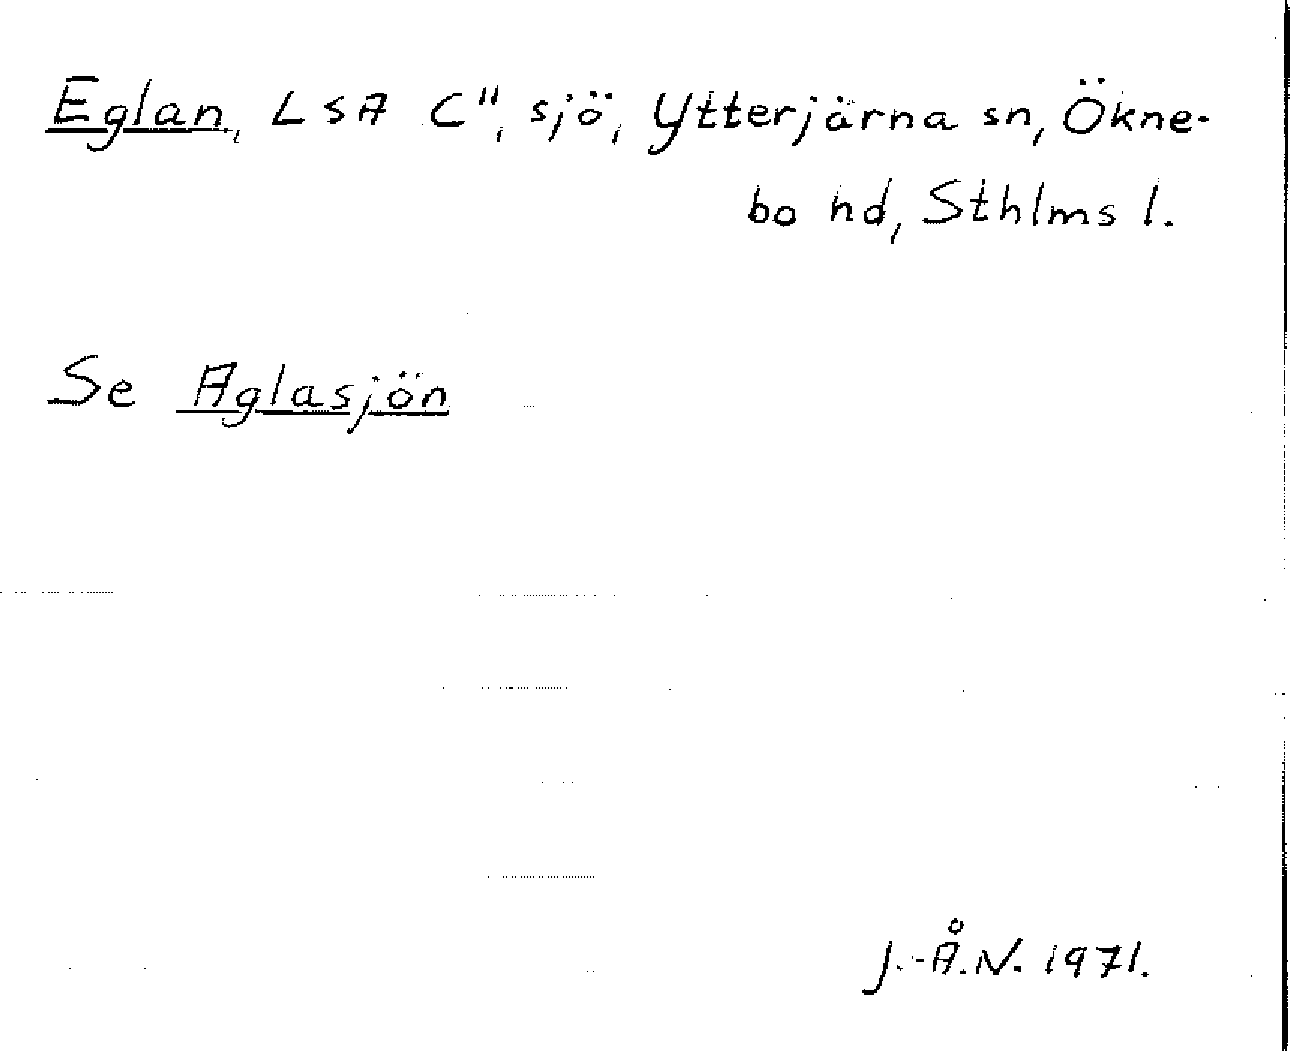 Eglan, LSA C", sjö, Ytterjärna sn, Ökne-
bo hd, Sthlms l.
Se Aglasjön
J.-Å.N. 1971.